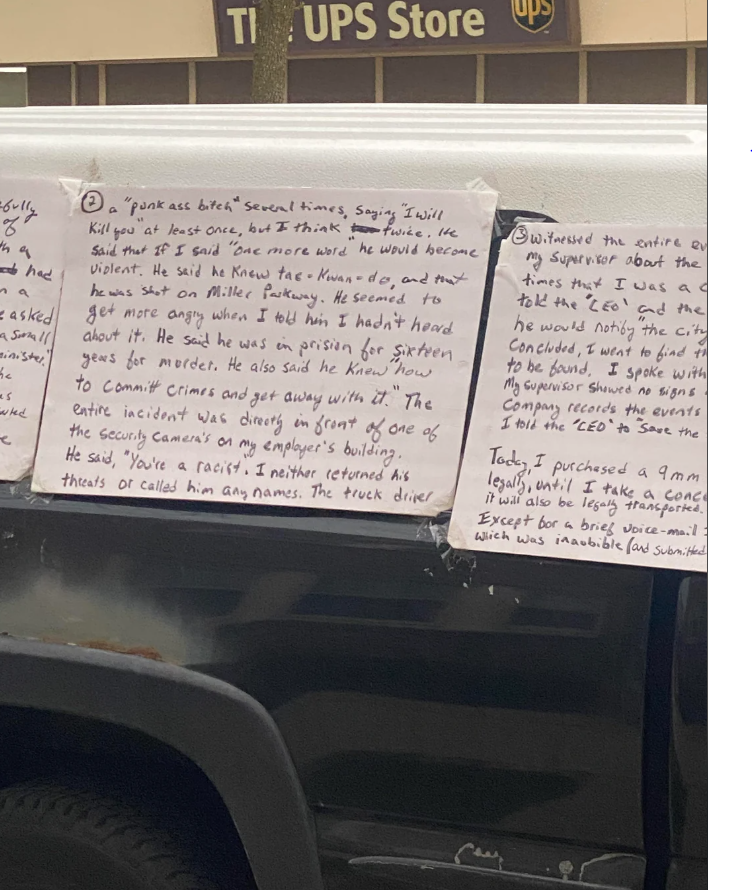 The UPS Store
ups
fully
of
th a
had
n a
asked
a small
he
as
② a "punk ass bitch" several times, saying "I will
kill you" at least once, but I think twice. He
said that If I said "one more word" he would become
violent. He said he knew tae-kwan-do, and that
he was shot on Miller Parkway. He seemed to
get more angry when I told him I hadn't heard
about it. He said he was in prision for sixteen
years for morder. He also said he knew "how
to committ crimes and get away with it." The
entire incident was directly in front of one of
the security camera's on my employer's building.
He said, "You're a racist". I neither returned his
threats or called him any names. The truck driver
③ witnessed the entire ev
my supervisor about the
times that I was a c
told the "CEO" and the
he would notify the city
concluded, I went to find th
to be found. I spoke with
My supervisor showed no signs
Company records the events
I told the "CEO" to "save the
Today, I purchased a 9mm
legally, until I take a conce
it will also be legally transported.
Except for a brief voice-mail I
which was inaubible (and submitted